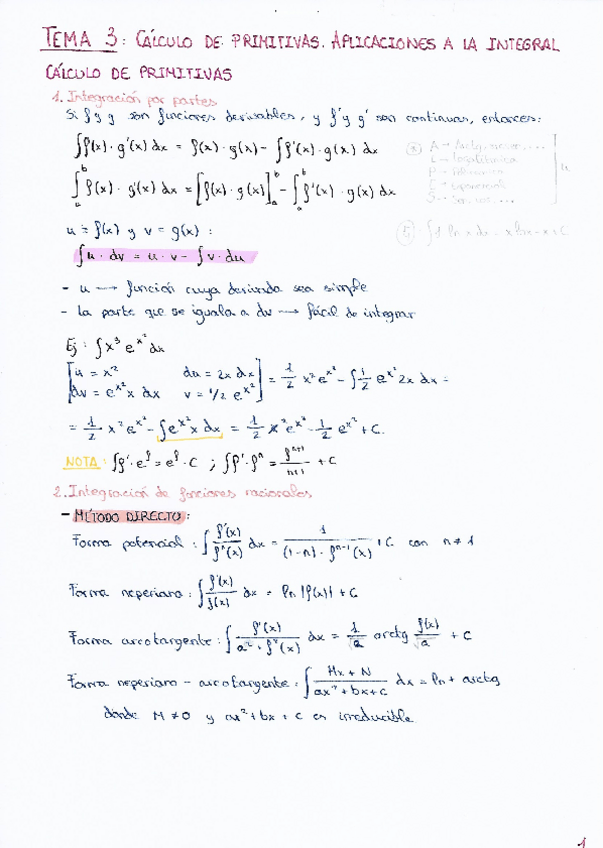 TEMA 3: CÁLCULO DE PRIMITIVAS. APLICACIONES A LA INTEGRAL
CÁLCULO DE PRIMITIVAS
1. Integración por partes
Si f y g son funciones derivables, y f' y g' son continuas, entonces:
∫f(x)·g'(x) dx = f(x)·g(x) - ∫f'(x)·g(x) dx
∫_a^b f(x)·g'(x) dx = [f(x)·g(x)]_a^b - ∫_a^b f'(x)·g(x) dx
u = f(x) y v = g(x):
∫u·dv = u·v - ∫v·du
- u → función cuya derivada sea simple
- La parte que se iguala a dv → fácil de integrar
Ej: ∫x³ e^{x²} dx
[u = x² du = 2x dx
dv = e^{x²} x dx v = 1/2 e^{x²}] = 1/2 x² e^{x²} - ∫1/2 e^{x²} 2x dx =
= 1/2 x² e^{x²} - ∫e^{x²} x dx = 1/2 x² e^{x²} - 1/2 e^{x²} + C.
NOTA: ∫f'·e^f = e^f · C ; ∫f'·f^n = f^{n+1}/n+1 + C
2. Integración de funciones racionales
- MÉTODO DIRECTO:
Forma potencial: ∫f'(x)/f^n(x) dx = 1/(1-n)·f^{n-1}(x) + C con n ≠ 1
Forma neperiano: ∫f'(x)/f(x) dx = ln|f(x)| + C
Forma arcotangente: ∫f'(x)/a²+f²(x) dx = 1/√a arctg f(x)/√a + C
Forma neperiano - arcotangente: ∫Mx + N/ax² + bx + c dx = ln + arctg
dónde M ≠ 0 y ax² + bx + c es irreducible
1